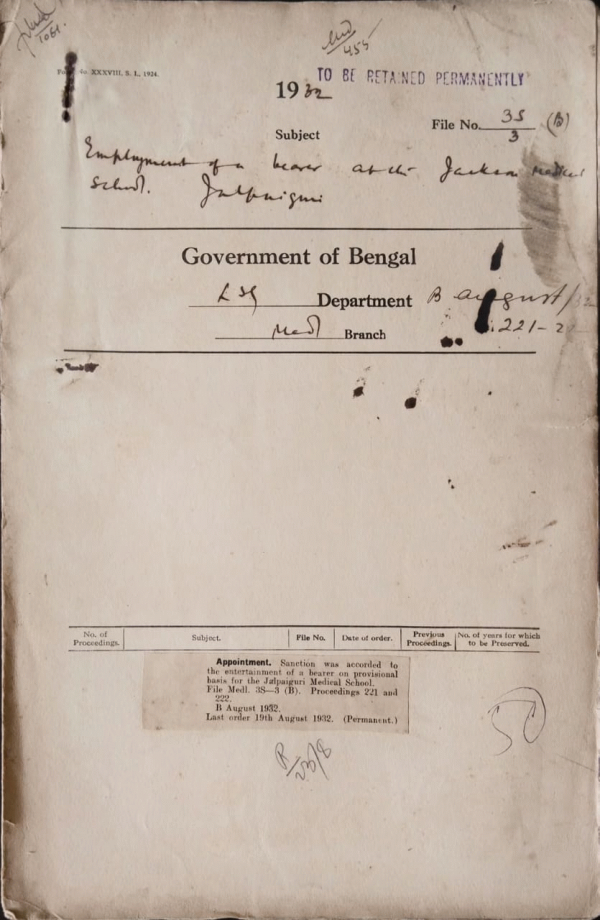 1061.
Med
455
No. XXXVIII, S. L., 1924.
TO BE RETAINED PERMANENTLY
1932
File No. 3S/3 (B)
Subject
Employment of a bearer at the Jackson Medical
School. Jalpaiguri
Government of Bengal
LSG Department B August/32
Medl Branch 221-2
No. of Proceedings. Subject. File No. Date of order. Previous Proceedings. No. of years for which to be Preserved.
Appointment. Sanction was accorded to
the entertainment of a bearer on provisional
basis for the Jalpaiguri Medical School.
File Medl. 3S—3 (B). Proceedings 221 and
222.
B August 1932.
Last order 19th August 1932. (Permanent.)
50